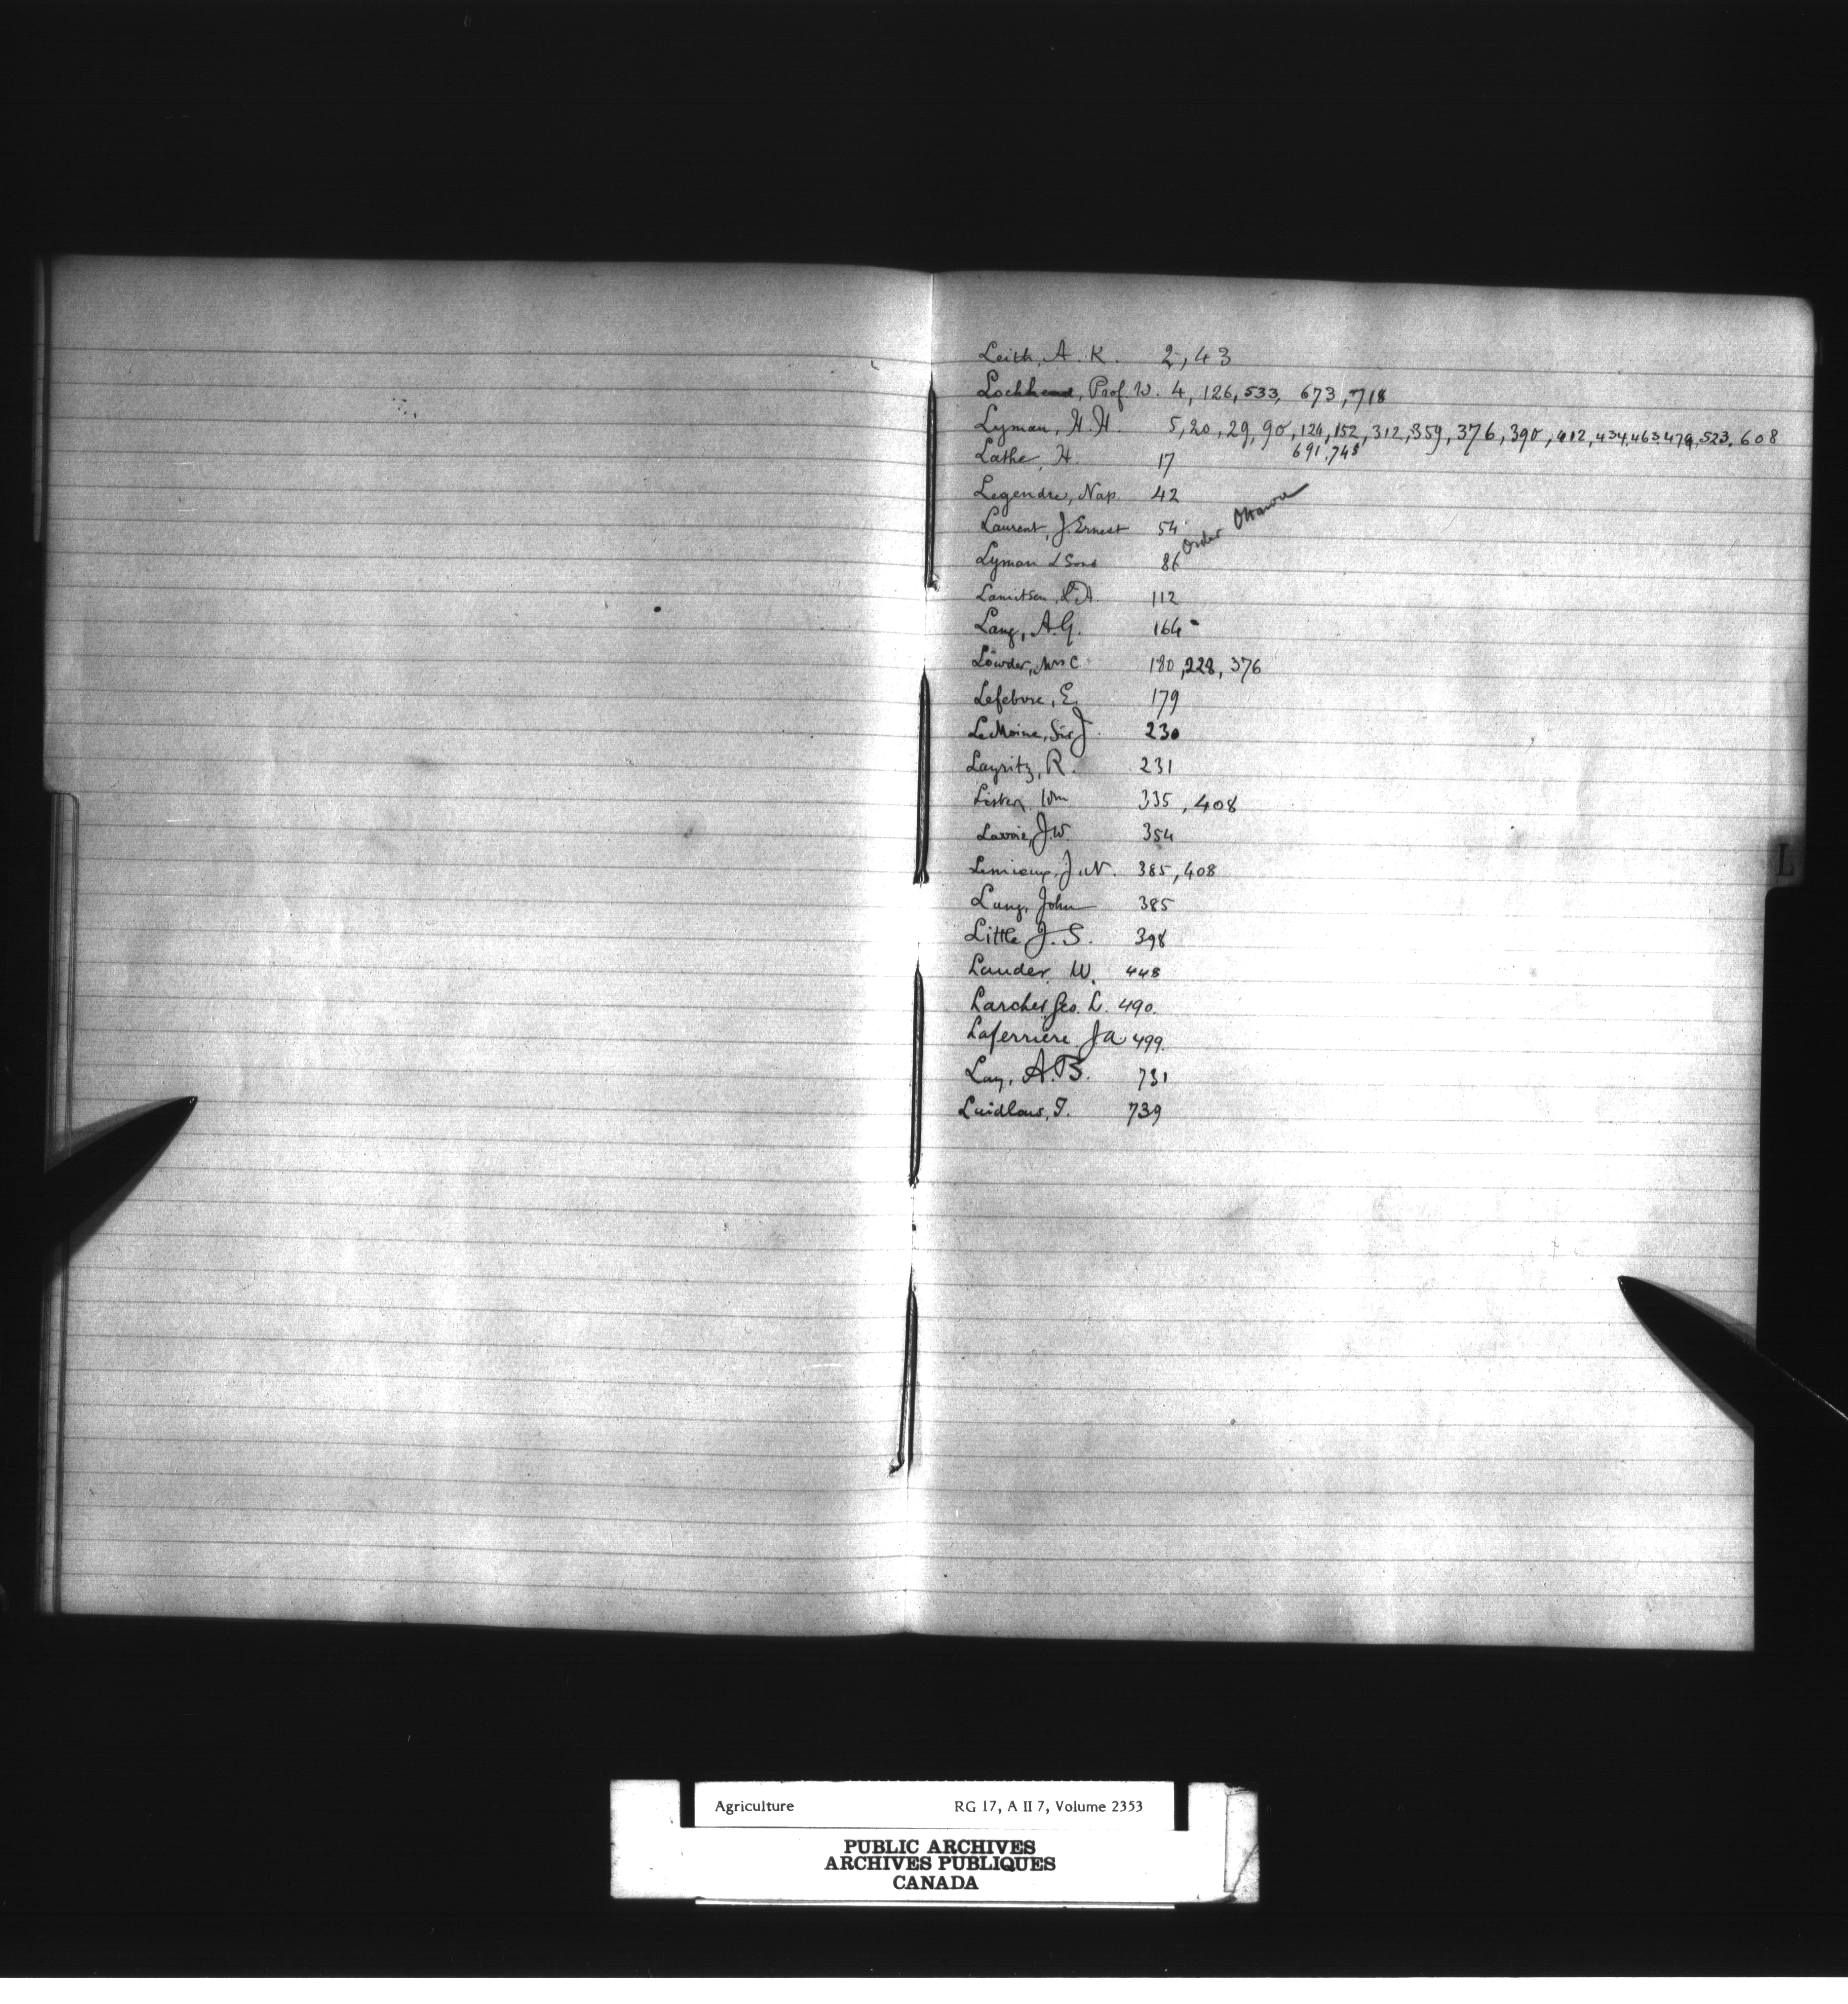 Leith, A. K. 2, 43
Lochhead, Prof. W. 4, 126, 533, 673, 718
Lyman, H. H. 5, 20, 29, 90, 124, 152, 312, 359, 376, 390, 412, 434, 463, 479, 523, 608
691, 745
Lathe, H. 17
Legendre, Nap. 42
Laurent, J. Ernest 54
Order Ottawa
Lyman & Sons 86
112
Lang, A. G. 164
Lowder, Mrs C. 180, 228, 376
Lefebvre, E. 179
LeMoine, Sir J. 230
Layritz, R. 231
Lister, Wm 335, 408
Lavoie, J. W. 354
Lemieux, J. N. 385, 408
Lang, John 385
L
Little J. S. 398
Lauder, W. 448
Larches Geo. L. 490.
Laferrière J a 499.
Lay, A. B. 731
Laidlaw, T. 739
Agriculture RG 17, A II 7, Volume 2353
PUBLIC ARCHIVES
ARCHIVES PUBLIQUES
CANADA